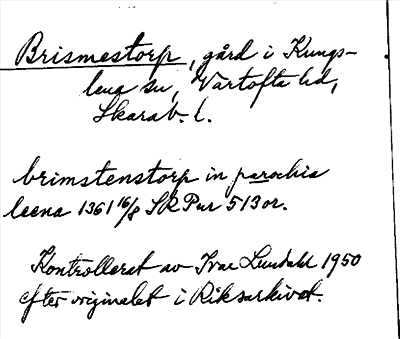 Brismestorp, gård i Kungs-
lena sn, Vartofta hd,
Skarab. l.
brimstenstorp in parochia
leena 1361 16/8 SkPur 513 or.
Kontrollerat av Ivar Lundahl 1950
efter originalet i Riksarkivet.